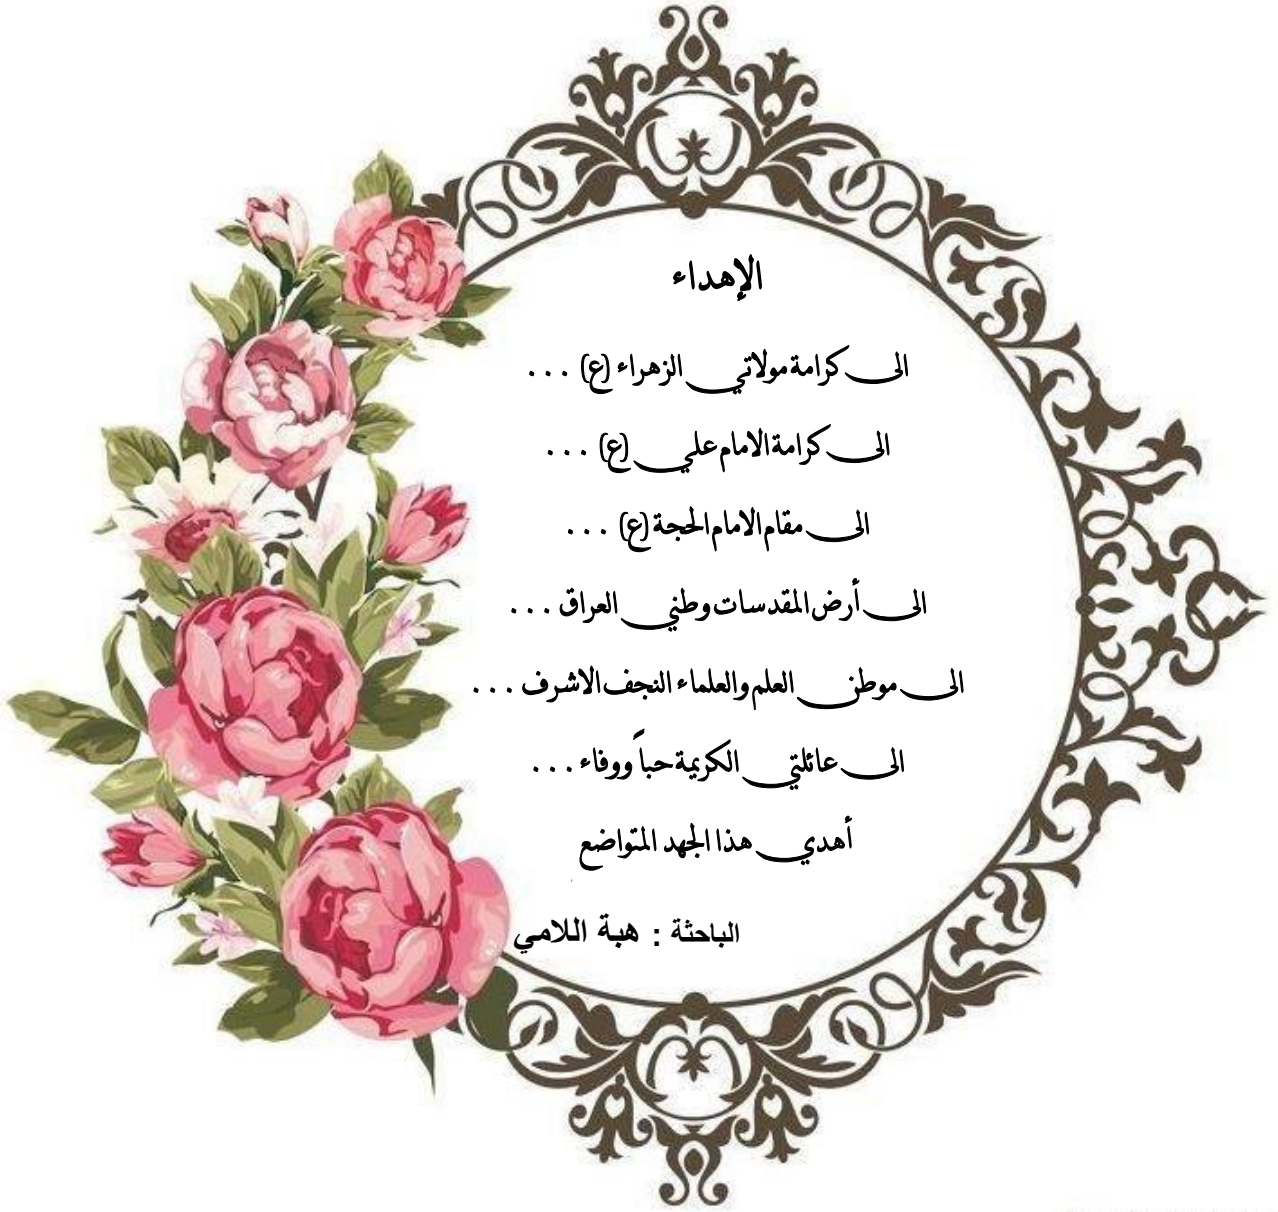 الإهداء
الى كرامة مولاتي الزهراء (ع) ...
الى كرامة الامام علي (ع) ...
الى مقام الامام الحجة (ع) ...
الى أرض المقدسات وطني العراق ...
الى موطن العلم والعلماء النجف الاشرف ...
الى عائلتي الكريمة حباً ووفاء ...
أهدي هذا الجهد المتواضع
الباحثة : هبة اللامي